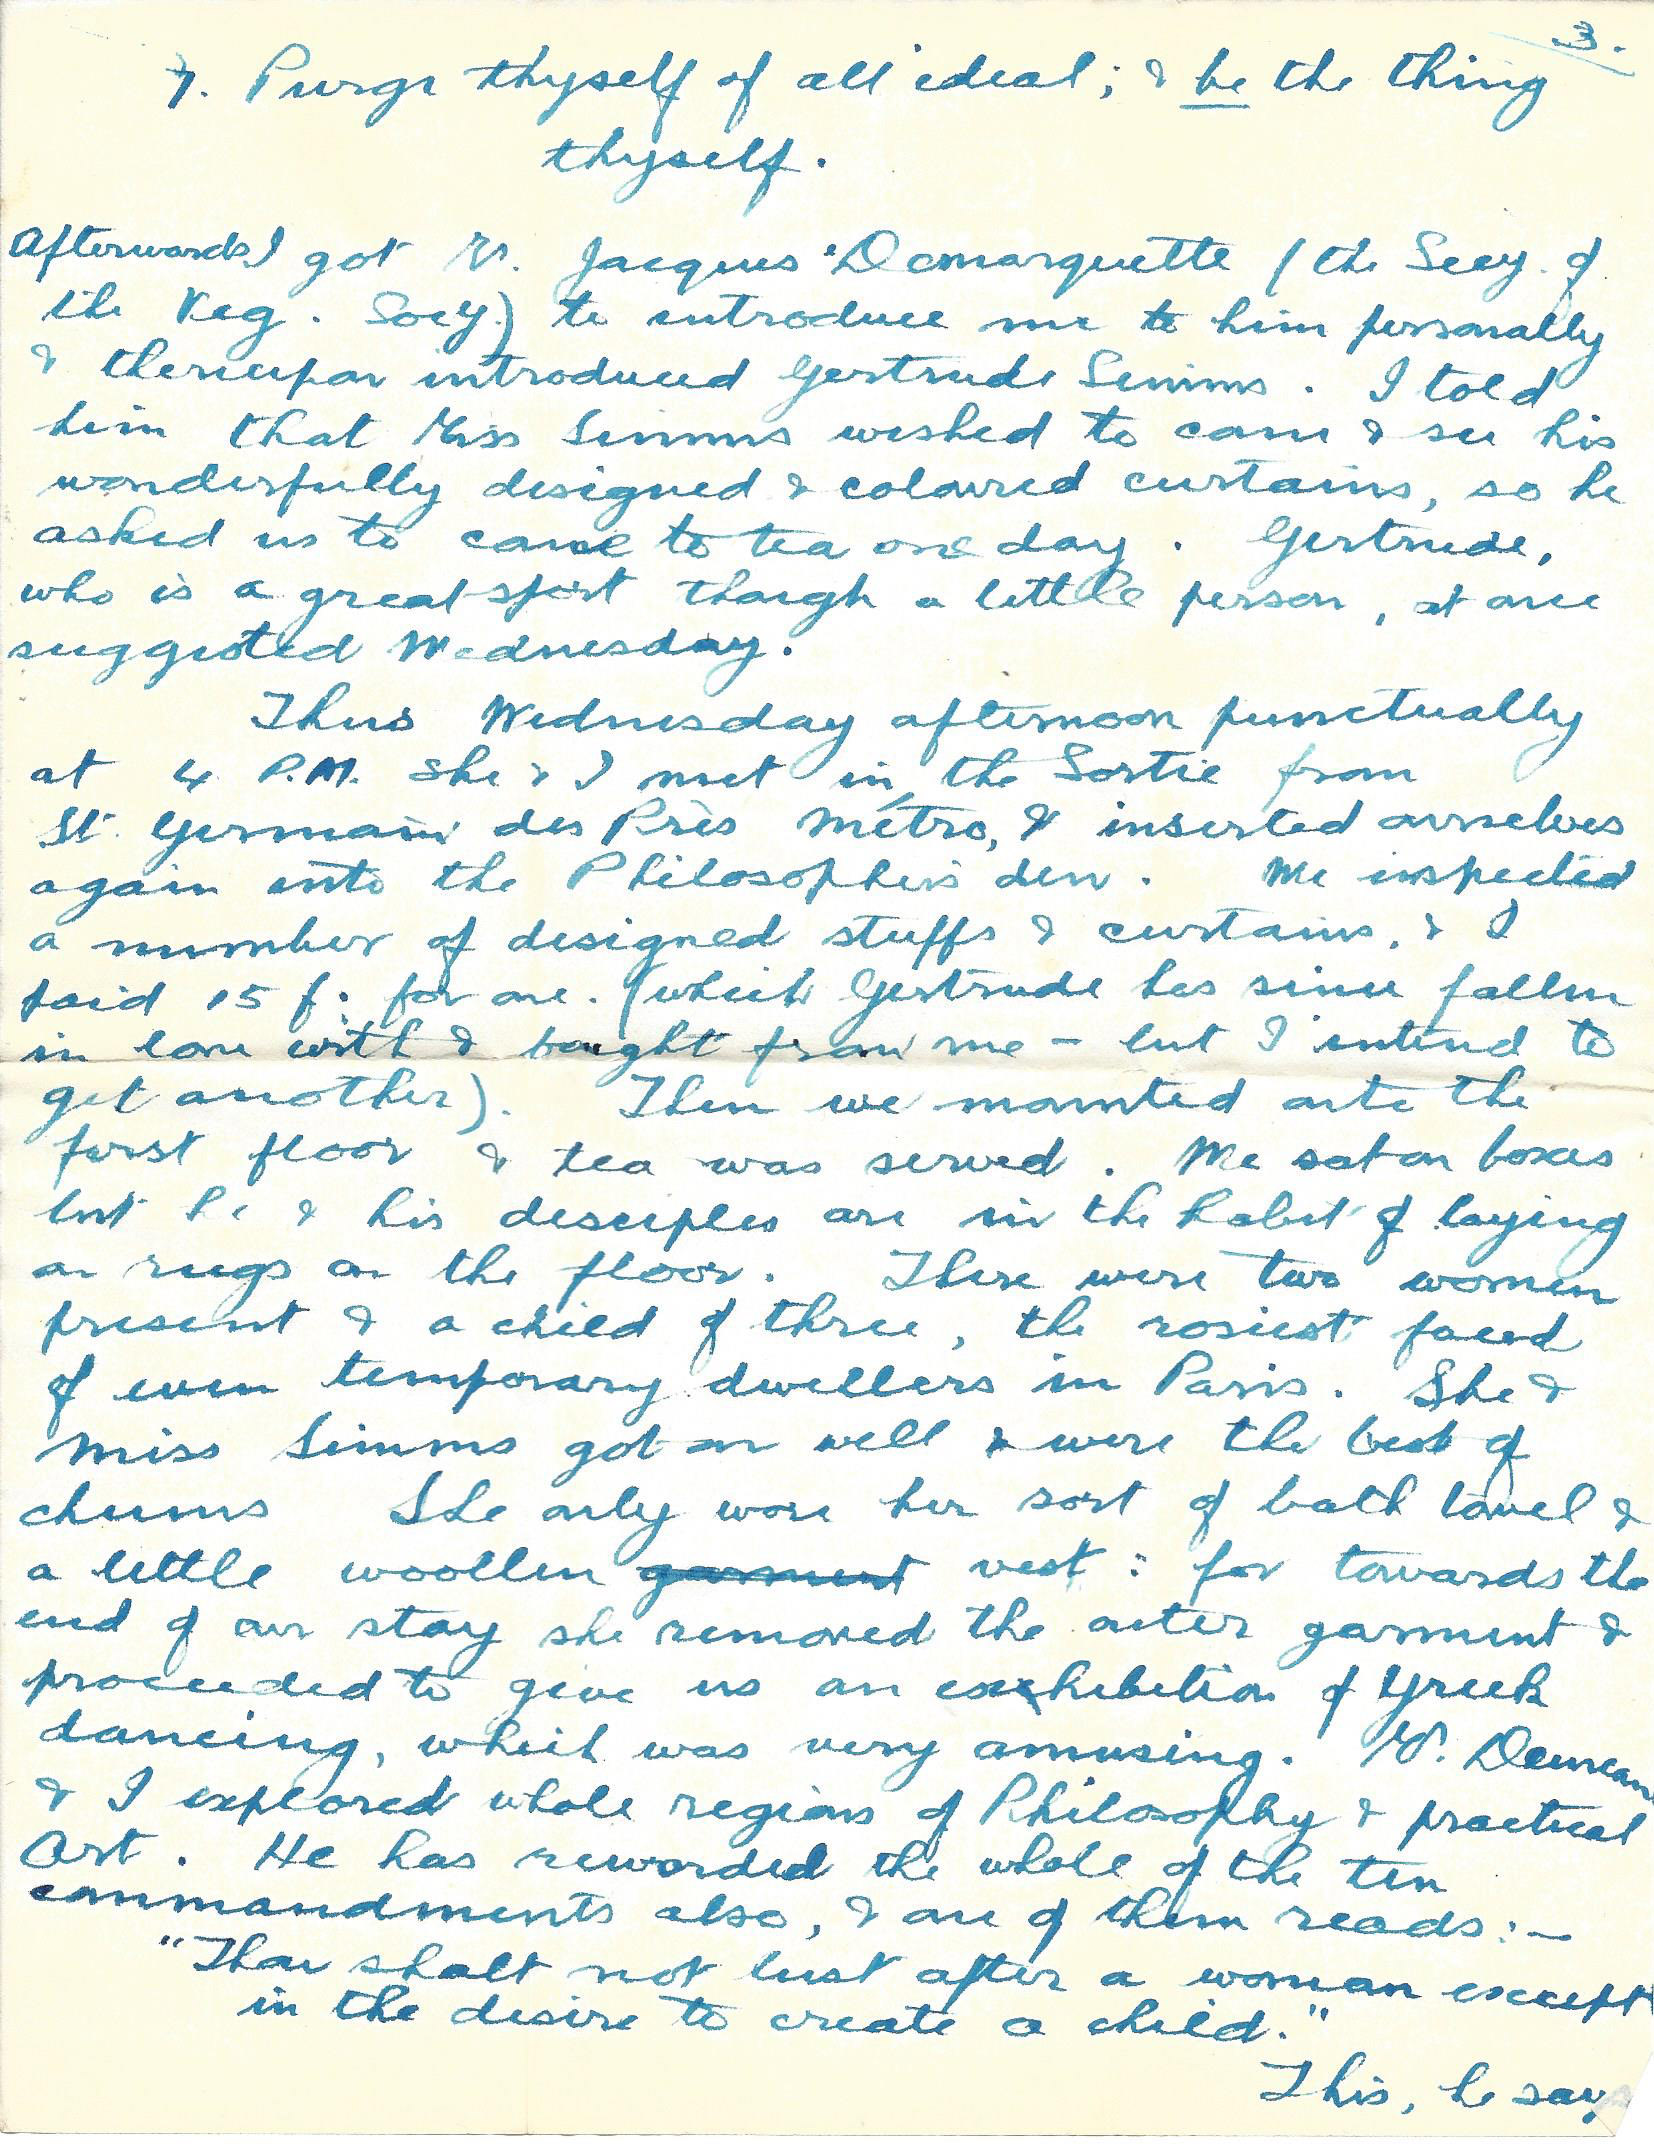 3.
7. Purge thyself of all ideal; & be the thing
thyself.
Afterwards I got M. Jacques Demarquette (the Secy. of
the Veg. Socy.) to introduce me to him personally
& thereupon introduced Gertrude Simms. I told
him that Miss Simms wished to come & see his
wonderfully designed & coloured curtains, so he
asked us to come to tea one day. Gertrude,
who is a great sport though a little person, at once
suggested Wednesday.
Thus Wednesday afternoon punctually
at 4 P.M. she & I met in the Sortie from
St. Germain des Près Métro, & inserted ourselves
again into the Philosopher's den. We inspected
a number of designed stuffs & curtains, & I
paid 15 f. for one. (which Gertrude has since fallen
in love with & bought from me - but I intend to
get another). Then we mounted onto the
first floor & tea was served. We sat on boxes
but he & his desciples are in the habit of laying
on rugs on the floor. There were two women
present & a child of three, the rosiest faced
of even temporary dwellers in Paris. She &
Miss Simms got on well & were the best of
chums She only wore her sort of bath towel &
a little woollen garment vest: for towards the
end of our stay she removed the outer garment &
proceeded to give us an exhibition of Greek
dancing, which was very amusing. M. Duncan
& I explored whole regions of Philosophy & practical
Art. He has reworded the whole of the ten
commandments also, & one of them reads:-
"Thou shalt not lust after a woman except
in the desire to create a child."
This, he says